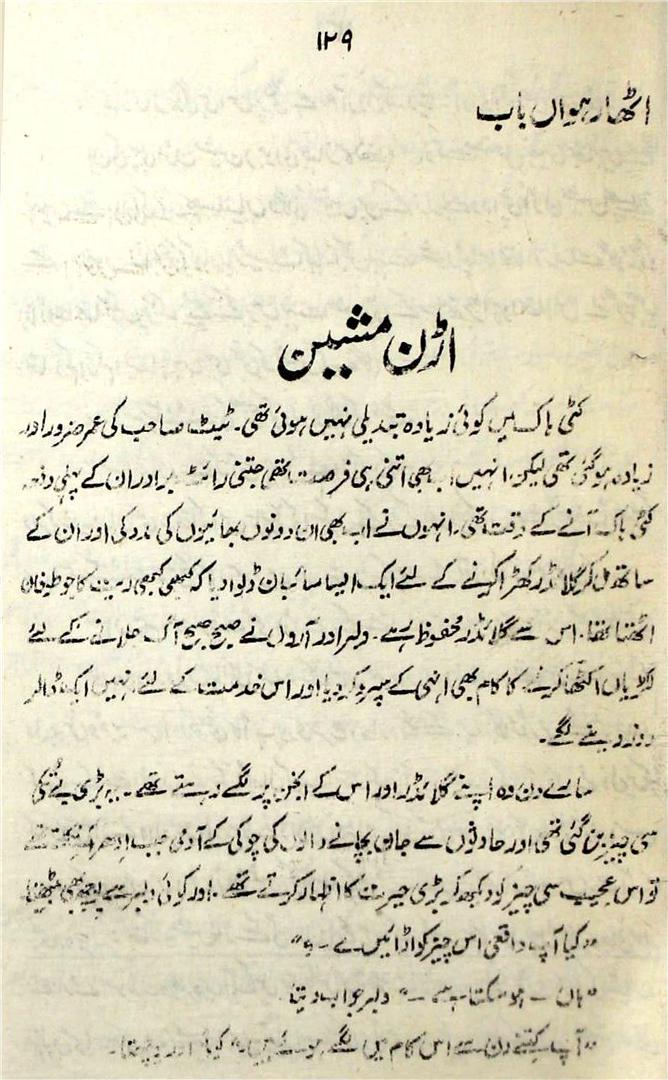 ۱۲۹
اٹھارہواں باب
اڑن مشین
کٹی ہاک میں کوئی زیادہ تبدیلی نہیں ہوئی تھی۔ ٹیٹ صاحب کی عمر ضرور اور
زیادہ ہوگئی تھی لیکن انہیں اب بھی اتنی ہی فرصت تھی جتنی رائٹ برادران کے پہلی دفعہ
کٹی ہاک آنے کے وقت تھی۔ انہوں نے اب بھی ان دونوں بھائیوں کی مدد کی اور ان کے
ساتھ مل کر گلائڈر کھڑا کرنے کے لئے ایک ایسا سائبان ڈلوا دیا کہ کبھی کبھی ریت کا جو طوفان
اٹھتا تھا۔ اس سے گلائڈر محفوظ رہے۔ ولبر اور آرول نے صبح صبح آگ جلانے کے لئے
لکڑیاں اکٹھا کرنے کا کام بھی انہی کے سپرد کر دیا اور اس خدمت کے لئے انہیں ایک ڈالر
روز دینے لگے۔
سارے دن وہ اپنے گلائڈر اور اس کے انجن پر لگے رہتے تھے۔ یہ بڑی بے تکی
سی چیز بن گئی تھی اور حادثوں سے جان بچانے والوں کی چوکی کے آدمی جب ادھر آ نکلتے تھے
تو اس عجیب سی چیز کو دیکھ کر بڑی حیرت کا اظہار کرتے تھے۔ اور کوئی ولبر سے پوچھ بھی بیٹھتا
"کیا آپ واقعی اس چیز کو اڑائیں گے۔؟"
"ہاں ۔ ہو سکتا ہے ۔" ولبر جواب دیتا۔
"آپ کتنے دن سے اس کام میں لگے ہوئے ہیں۔" کوئی اور پوچھتا۔